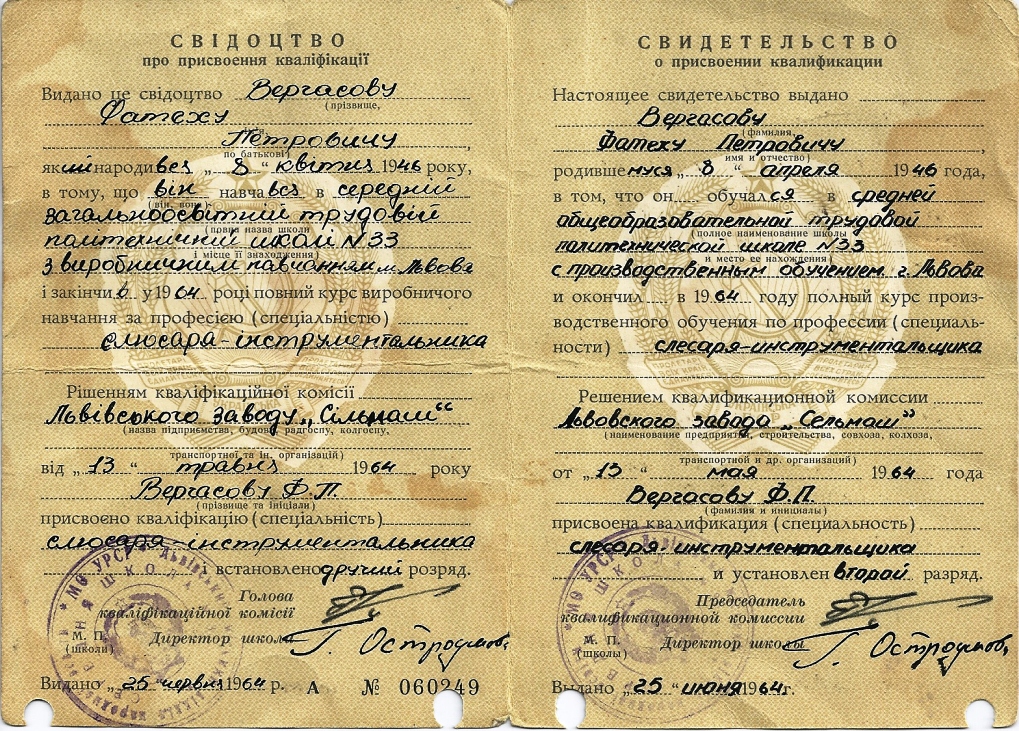 СВІДОЦТВО
про присвоєння кваліфікації
Видано це свідоцтво Вергасову
(прізвище,
Фатеху
ім'я,
Петровичу
по батькові)
який народивсь „ 8 “ квітня 1946 року,
в тому, що він навчавсь в середній
(він, вона)
загальноосвітній трудовій
(повна назва школи
политехничній школі N 33
і місце її знаходження)
з виробничним навчанням м. Львова
і закінчив у 1964 році повний курс виробничого
навчання за професією (спеціальністю)
слюсара-інструментальника
Рішенням кваліфікаційної комісії
Львівського заводу „Сільмаш“
(назва підприємства, будови, радгоспу, колгоспу,
транспортної та ін. організації)
від „ 13 “ травня 1964 року
Вергасову Ф.П.
(прізвище та ініціали)
присвоєно кваліфікацію (спеціальність)
слюсаря-інструментальника
і встановлено другий розряд.
Голова
кваліфікаційної комісії
М. П.
(школи)
Директор школи Г. Остроумов
Видано „ 25 “ червня 1964 р. А № 060249
СВИДЕТЕЛЬСТВО
о присвоении квалификации
Настоящее свидетельство выдано
Вергасову
(фамилия,
Фатеху Петровичу
имя и отчество)
родившемуся „ 8 “ апреля 1946 года,
в том, что он обучался в средней
общеобразовательной трудавой
(полное наименование школы
политехнической школе N 33
и место ее нахождения)
с производственным обучением г. Львова
и окончил в 1964 году полный курс произ-
водственного обучения по профессии (специаль-
ности) слесаря-инструментальщика
Решением квалификационной комиссии
Львовского завода „Сельмаш”
(наименование предприятия, строительства, совхоза, колхоза,
транспортной и др. организаций)
от „ 13 “ мая 1964 года
Вергасову Ф.П.
(фамилия и инициалы)
присвоена квалификация (специальность)
слесаря-инструментальщика
и установлен второй разряд.
Председатель
квалификационной комиссии
М. П.
(школы)
Директор школы Г. Остроумов
Выдано „ 25 “ июня 1964 г.